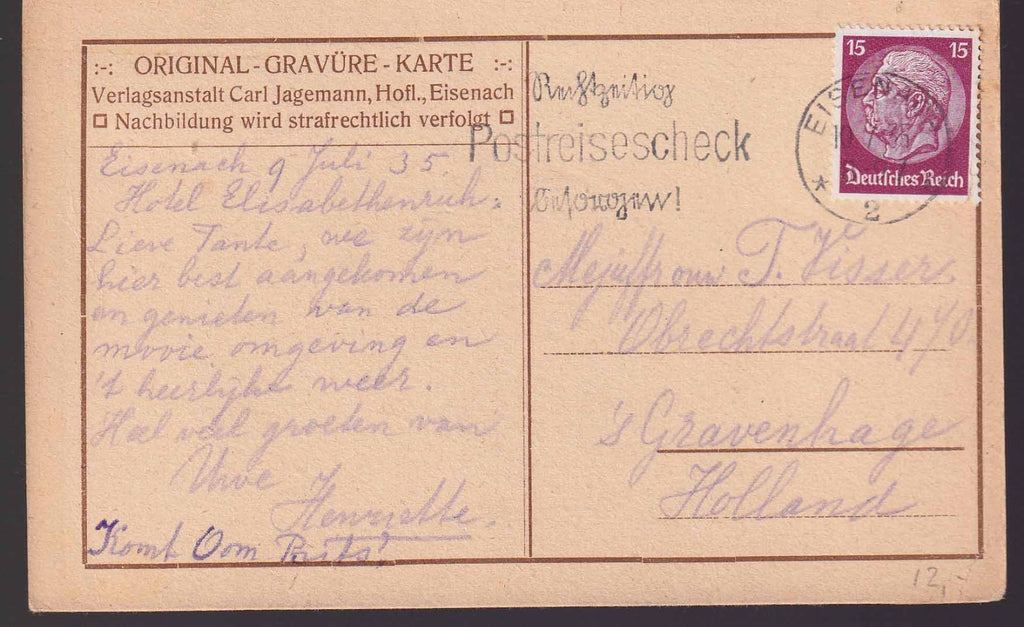 :-: ORIGINAL-GRAVÜRE-KARTE :-:
Verlagsanstalt Carl Jagemann, Hofl., Eisenach
Nachbildung wird strafrechtlich verfolgt
Eisenach 9 Juli 35.
Hotel Elisabethenruh.
Lieve Tante, we zyn
hier best aangekomen
en genieten van de
mooie omgeving en
't heerlyke weer.
Heel veel groeten van
Uwe
Henriette.
Komt Oom
Rechtzeitig
Postreisescheck
besorgen!
EISENACH
2
15 15
Deutsches Reich
Mejuffrouw T. Visser.
Obrechtstraat 470.
's Gravenhage
Holland
12,-